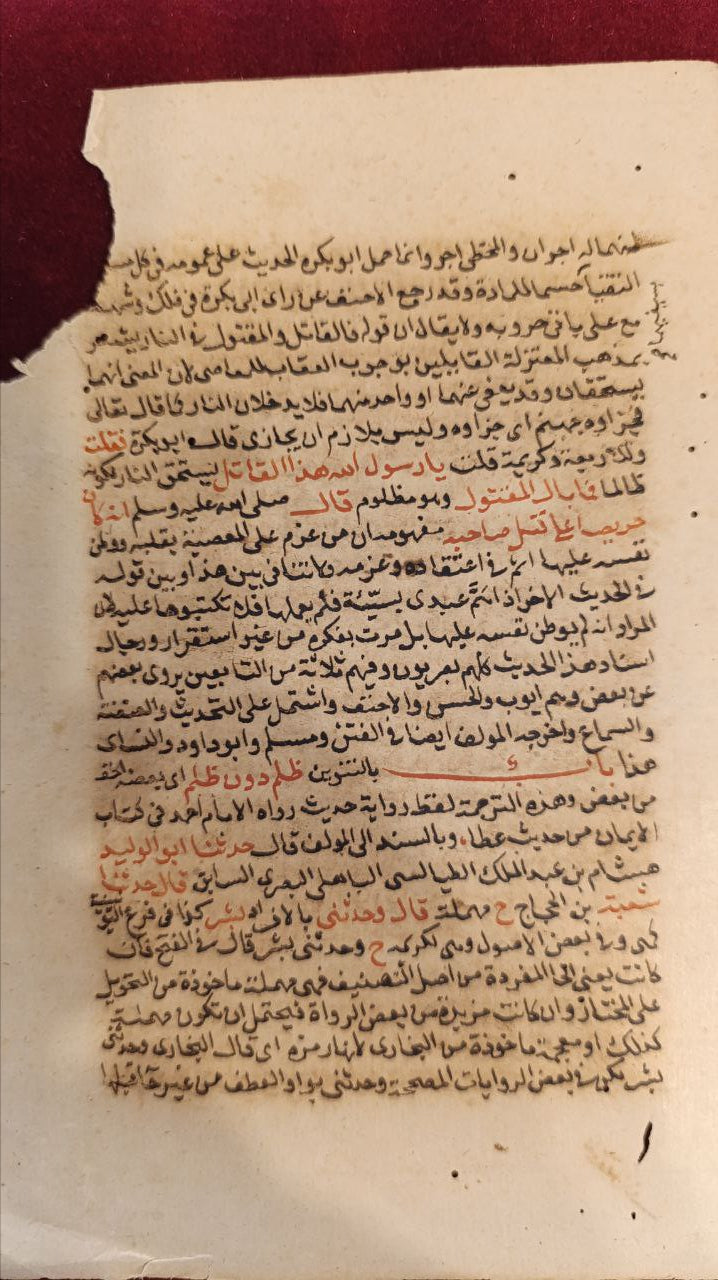 منهما له اجران والمخطى اجر وانما حمل ابو بكرة الحديث على عمومه فى كل
التقيا حسما للمادة وقد رجع الاحنف عن راى ابى بكرة فى ذلك وشهد
مع على باقى حروبه ولا يقال ان قوله فالقاتل والمقتول فى النار يشعر
بمذهب المعتزلة القايلين بوجوب العقاب للعاصى لان المعنى انهما
يستحقان وقد يعفى عنهما او واحد منهما فلا يدخلان النار كما قال تعالى
فجزاوه جهنم اى جزاوه وليس بلازم ان يجازى قال ابو بكرة فقلت
وللاربعة وكريمة قلت يا رسول الله هذا القاتل يستحق النار لكونه
ظالما فما بال المقتول وهو مظلوم قال صلى الله عليه وسلم انه كان
حريصا على قتل صاحبه مفهومه ان من عزم على المعصية بقلبه ووطن
نفسه عليها اثم فى اعتقاده وعزمه ولا تنافى بين هذا وبين قوله
فى الحديث الاخر اذا هم عبدى بسيّئة فلم يعملها فلا تكتبوها عليه لان
المراد انه لم يوطن نفسه عليها بل مرت بفكره من غير استقرار ورجال
اسناد هذا الحديث كلهم بصريون وفيهم ثلاثة من التابعين يروى بعضهم
عن بعض وهم ايوب والحسن والاحنف واشتمل على التحديث والعنعنة
والسماع واخرجه المولف ايضا فى الفتن ومسلم وابو داود والنساى
هذا باب بالتنوين ظلم دون ظلم اى بعضه اخف
من بعض وهذه الترجمة لفظ رواية حديث رواه الامام احمد فى كتاب
الايمان من حديث عطاء وبالسند الى المولف قال حدثنا ابو الوليد
هشام بن عبد الملك الطيالسى الباهلى البصرى السابق قال حدثنا
شعبة بن الحجاج ح مهملة قال وحدثنى بالافراد بشر كذا فى فرع اليونينية
كهى وفى بعض الاصول وهى لكريمة ح وحدثنى بشر قال فى الفتح فان
كانت يعنى الحا المفردة من اصل التصنيف فهى مهملة ماخوذة من التحويل
على المختار وان كانت مزيدة من بعض الرواة فيحتمل ان تكون مهملة
كذلك او معجمة ماخوذة من البخارى لانها رمزه اى قال البخارى وحدثنى
بشر لكن فى بعض الروايات المصححة وحدثنى بواو العطف من غير حا قبلها